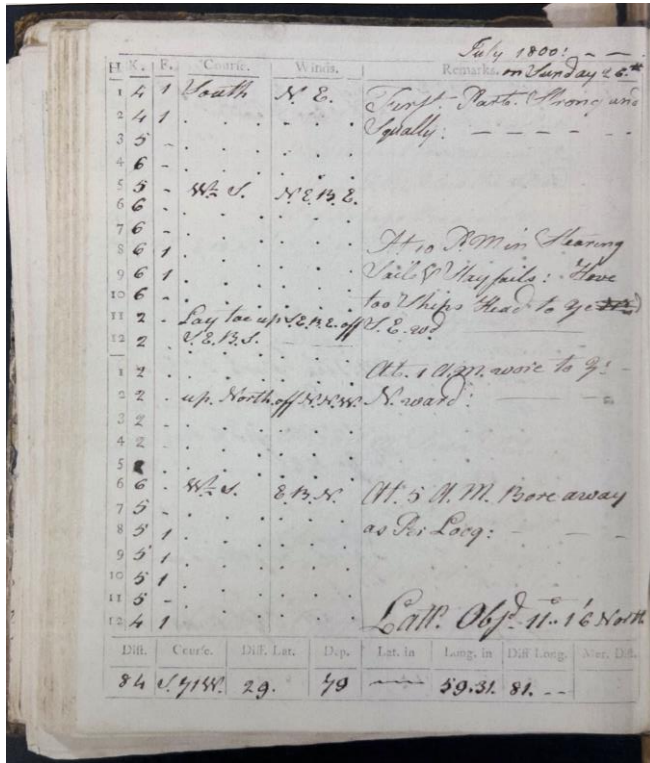 July 1800: - -
H K. F. Course. Winds. Remarks. on Sunday 26.th
1 4 1 South N. E. First Part. Strong and
2 4 1 . . Squally: - - - -
3 5 - . .
4 6 - . .
5 5 - Wt. S. N. E. B. E.
6 6 - . .
7 6 - . .
8 6 1 . . At 10 P. M in Stearing
9 6 1 . . Sails & Stay sails: Hove
10 6 - . . too Ships Head to ye
11 2 - Lay too up S. E. B. E. off S. E. wd
12 2 S. E. B. S.
1 2 . . At. 1 A. m. wore to ye: -
2 2 up. North. off N. N. W. N. ward: - - -
3 2 . .
4 2 . .
5 . .
6 6 - Wt. S. E. B. N. At. 5 A. M. Bore away
7 5 - . .
8 5 1 . . as Per Loog: - - -
9 5 1 . .
10 5 1 . .
11 5 - . .
12 4 1 . . Latt. Obsd. 11.. 16 North
Dist. Course. Diff. Lat. Dep. Lat. in Long. in Diff Long. Mer. Dist.
84 S. 71 W. 29. 79 — 59.31. 81. - -